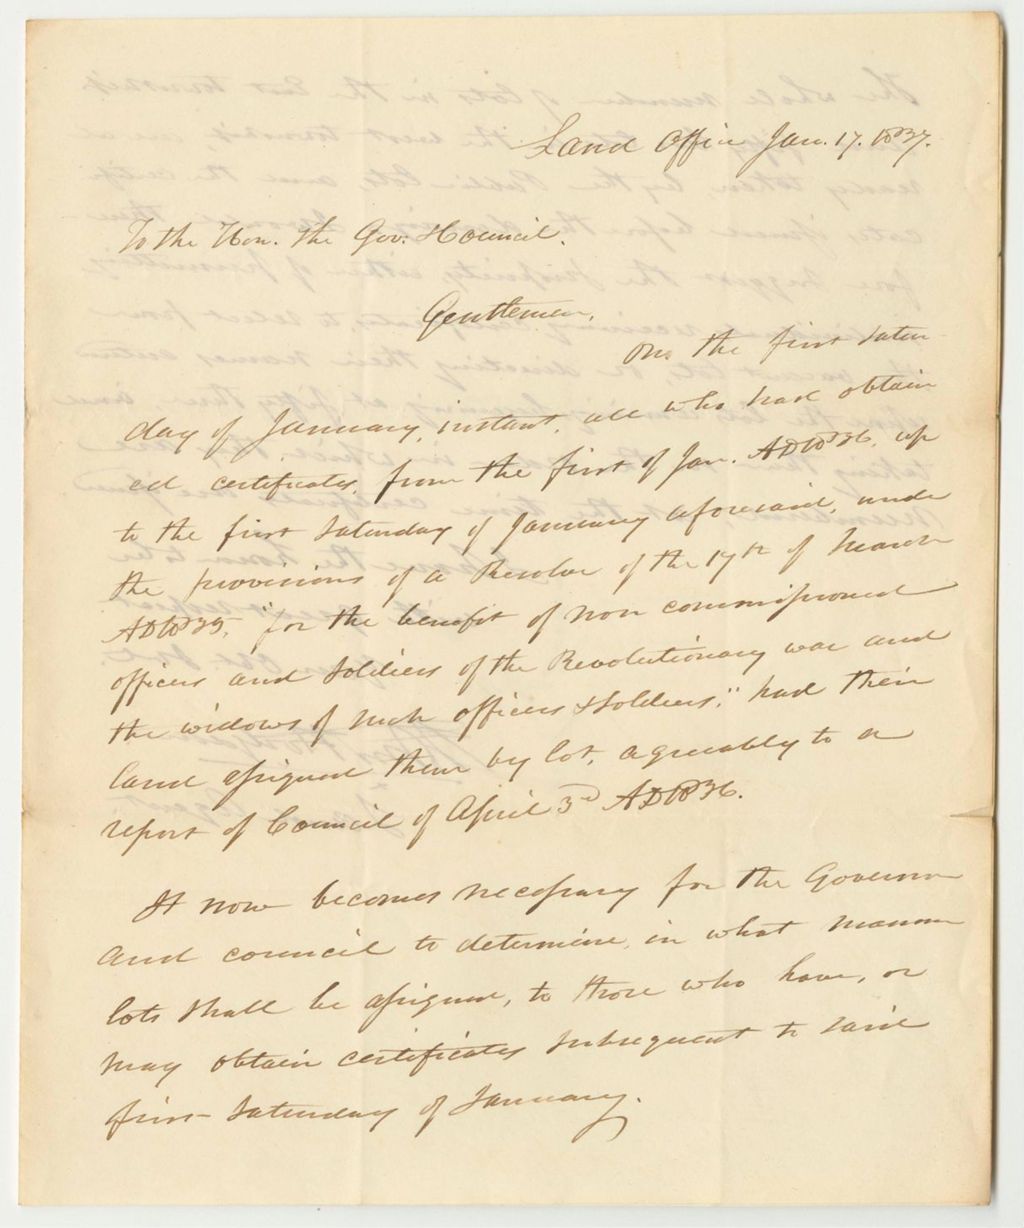 Land Office Jan. 17. 1837.
To the Hon. the Gov. & Council.
Gentlemen,
On the first Satur-
day of January, instant, all who had obtain
ed certificates, from the first of Jan. AD 1836, up
to the first Saturday of January aforesaid, under
the provisions of a Resolve of the 17th of March
AD 1835, "for the benefit of non commissioned
officers and soldiers of the Revolutionary war and
the widows of such officers & soldiers," had their
land assigned them by lot, agreeably to a
report of Council of April 3d AD 1836.
It now becomes necessary for the Governor
and council to determine, in what manner
lots shall be assigned, to those who have, or
may obtain certificates subsequent to said
first Saturday of January.